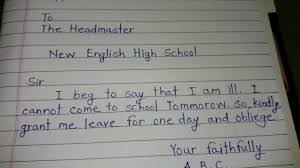 To
The Headmaster
New English High School
Sir
I beg to say that I am ill. I
cannot come to school Tommorow. So, kindly
grant me leave for one day and obliege.
Your faithfully
A. B. C.